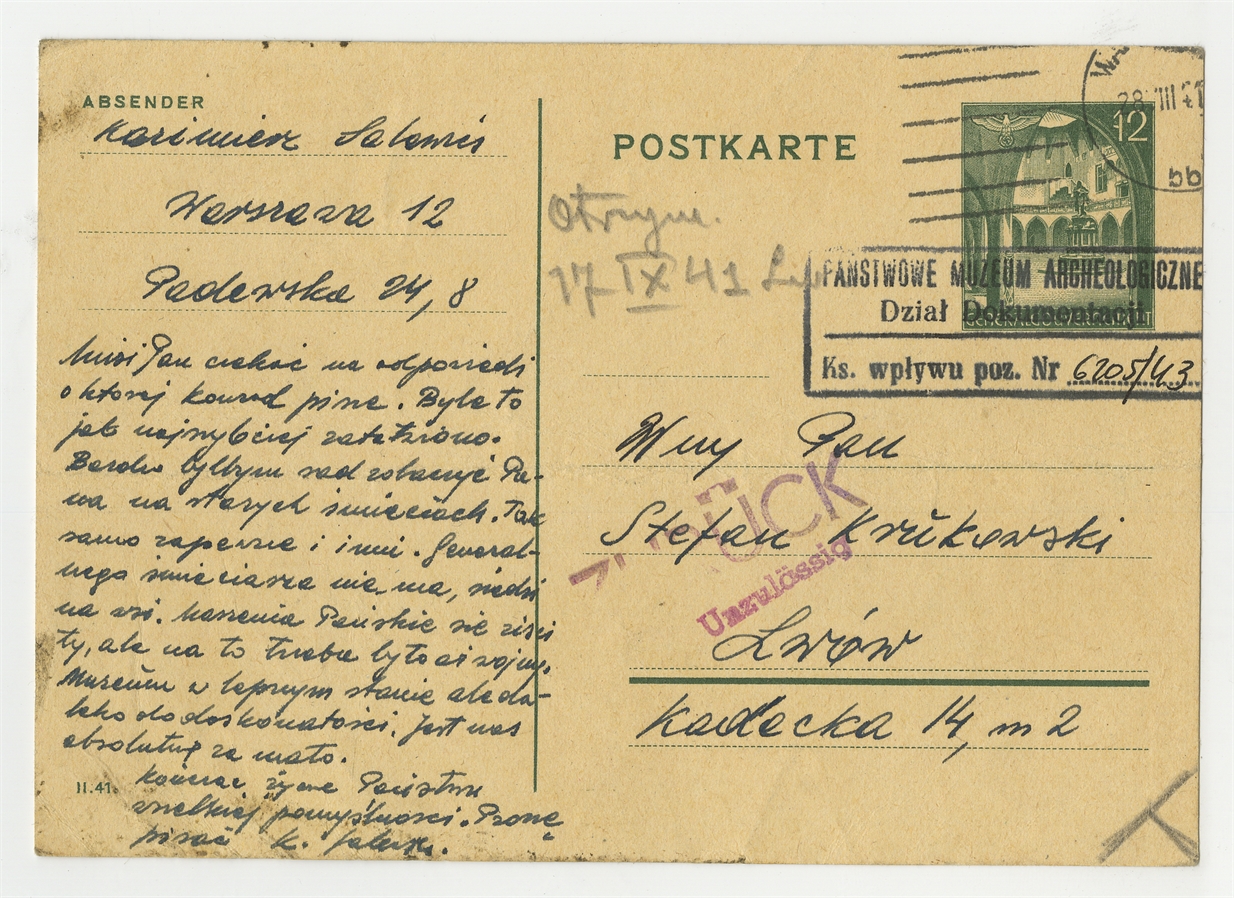 ABSENDER
Kazimierz Salewicz
Warszawa 12
Padewska 24, 8
Musi Pan czekać na odpowiedź
o której Konrad pisze. Było to
jak najszybciej załatwiono.
Bardzo byłbym rad zobaczyć Pa-
na na starych śmieciach. Tak
samo zapewne i inni. General-
nego śmieciarza nie ma, siedzi
na wsi. Marzenia Pańskie się ziści
ty, ale na to trzeba było aż wojny.
Muzeum w lepszym stanie ale da-
leko do doskonałości. Jest nas
absolutnie za mało.
Kończąc życzę Państwu
wszelkiej pomyślności. Proszę
pisać K. Salew.
II.41.
POSTKARTE
Otrzym.
17 IX 41
28 VIII 41
bb
12
GENERALGOUVERNEMENT
PAŃSTWOWE MUZEUM ARCHEOLOGICZNE
Dział Dokumentacji
Ks. wpływu poz. Nr 6205/43
Wny Pan
ZURÜCK
Stefan Krukowski
Unzulässig
Lwów
Kadecka 14, m 2